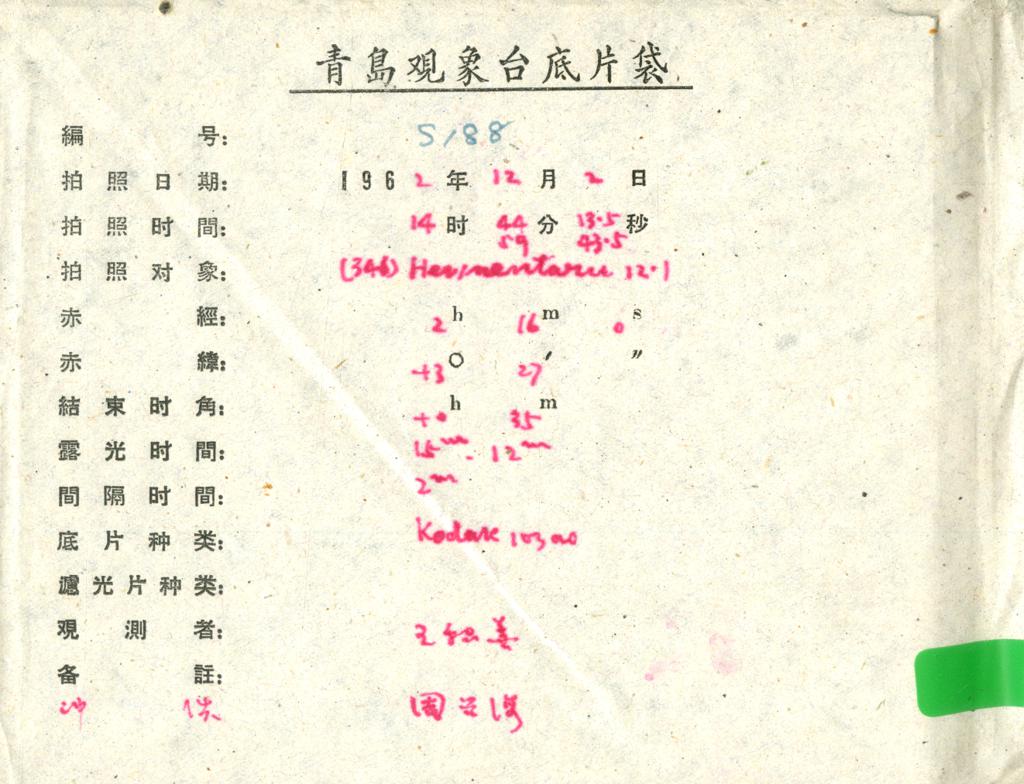 青島观象台底片袋
編号: S188
拍照日期: 1962年12月2日
拍照时間: 14时44分13.5秒
59 43.5
拍照对象: (346) Hermentaria 12.1
赤經: 2h 16m 0s
赤緯: +3° 27′ ″
結束时角: +0h 35m
露光时間: 15m - 12m
間隔时間: 2m
底片种类: Kodak 103a0
濾光片种类:
观測者: 王
备註:
冲 周